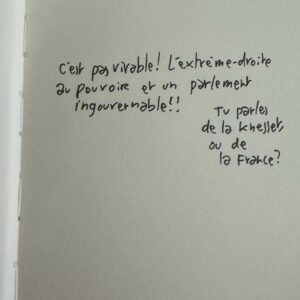 c'est pas vivable! L'extrême-droite
au pouvoir et un parlement
ingouvernable!!
Tu parles
de la Knesset,
ou de
la France?